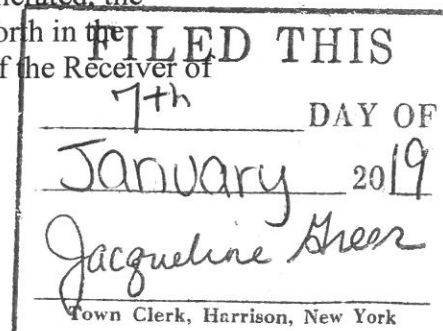 orth in the
f the Receiver of
FILED THIS
7th DAY OF
January 2019
Jacqueline Greer
Town Clerk, Harrison, New York